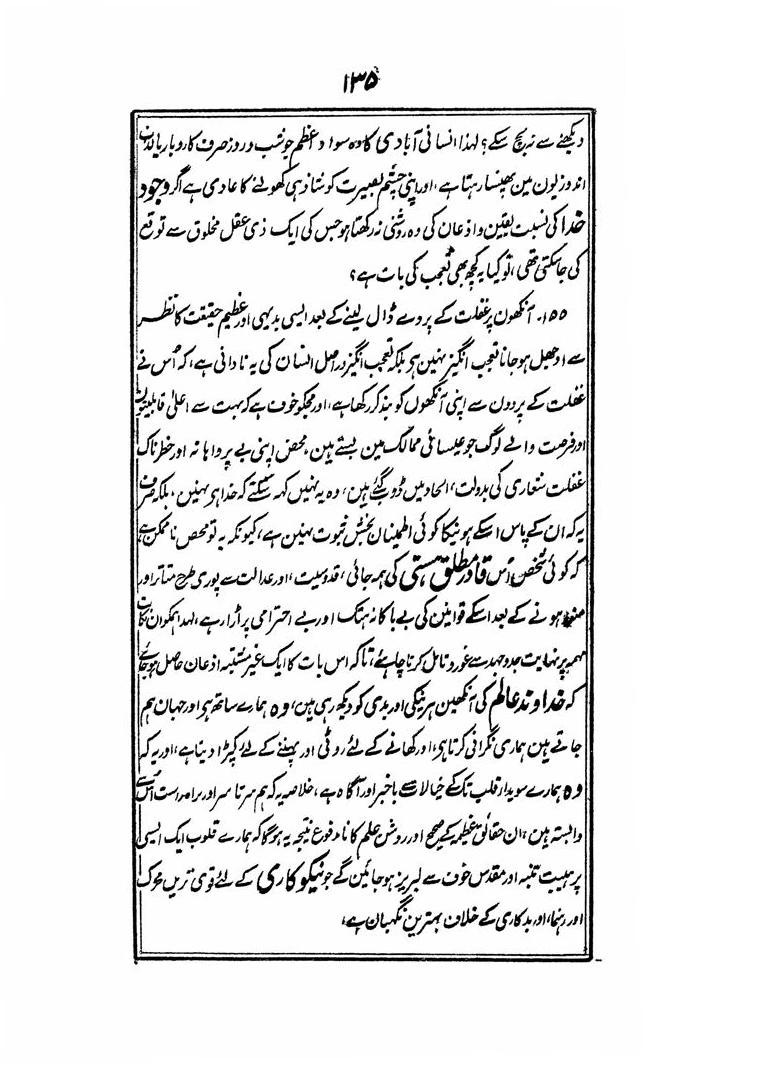 ۱۳۵
دیکھنے سے نہ بچ سکے؟ لہذا انسانی آبادی کا وہ سواد اعظم جو شب و روز صرف کاروبار یا لذت
اندوزیون مین پھنسا رہتا ہے، اور اپنی چشم بصیرت کو شاذ ہی کھولنے کا عادی ہے اگر وجود
خدا کی نسبت یقین و اذعان کی وہ روشنی نہ رکھتا ہو جس کی ایک ذی عقل مخلوق سے توقع
کی جاسکتی تھی، تو کیا یہ کچھ بھی تعجب کی بات ہے؟
۱۵۵۔ آنکھون پر غفلت کے پردے ڈال لینے کے بعد ایسی بدیہی اور عظیم حقیقت کا نظر
سے اوجھل ہو جانا تعجب انگیز نہین ہی بلکہ تعجب انگیز دراصل انسان کی یہ نادانی ہے، کہ اُس نے
غفلت کے پردون سے اپنی آنکھوں کو بند کر رکھا ہے، اور مجکو خوف ہے کہ بہت سے اعلیٰ قابلیتون
اور فرصت والے لوگ جو عیسائی ممالک مین بستے ہین، محض اپنی بے پروایانہ اور خطرناک
غفلت شعاری کی بدولت، الحاد مین ڈوب گئے ہین، وہ یہ نہیں کہہ سکتے کہ خدا ہی نہین، بلکہ صرف
یہ کہ ان کے پاس اسکے ہونیکا کوئی اطمینان بخش ثبوت نہین ہے، کیونکہ یہ تو محض ناممکن ہے
کہ کوئی شخص اُس قادر مطلق ہستی کی ہمہ جائی، قدوسیت، اور عدالت سے پوری طرح متاثر اور
ہونے کے بعد اسکے قوانین کی بے باکانہ ہتک اور بے احترامی پر اڑا رہے، لہذا ہمکو ان نکات
مہمہ پر نہایت جدوجہد سے غور و تامل کرنا چاہئے، تاکہ اس بات کا ایک غیر مشتبہ اذعان حاصل ہو جائے
کہ خداوند عالم کی آنکھین ہر نیکی اور بدی کو دیکھ رہی ہین، وہ ہمارے ساتھ ہی اور جہان ہم
جاتے ہین ہماری نگرانی کرتا ہی، اور کھانے کے لئے روٹی اور پہننے کے لئے کپڑا دیتا ہے، اور یہ کہ
وہ ہمارے سویدائے قلب تک کے خیالات سے باخبر اور آگاہ ہے، خلاصہ یہ کہ ہم سرتا سر اور براہ راست اُس سے
وابستہ ہین، ان حقائق عظیمہ کے صحیح اور روشن علم کا نامدفوع نتیجہ یہ ہوگا کہ ہمارے قلوب ایک ایسی
پر ہیبت تنبہ اور مقدس خوف سے لبریز ہو جائین گے جو نیکوکاری کے لئے قوی ترین محرک
اور رہنما، اور بدکاری کے خلاف بہترین نگہبان ہے،